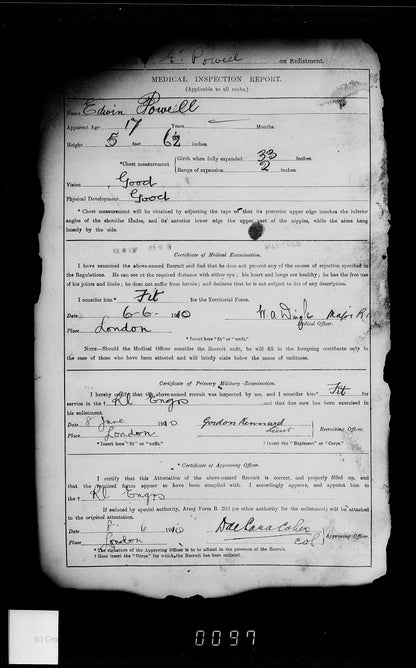 E. Powell on Enlistment.
MEDICAL INSPECTION REPORT.
(Applicable to all ranks.)
Name Edwin Powell
Apparent Age 17 Years — Months.
Height 5 feet 6½ inches.
*Chest measurement { Girth when fully expanded 33 inches.
Range of expansion 2 inches.
Vision Good
Physical Development Good
* Chest measurement will be obtained by adjusting the tape so that its posterior upper edge touches the inferior
angles of the shoulder blades, and its anterior lower edge the upper part of the nipples, while the arms hang
loosely by the side.
Certificate of Medical Examination.
I have examined the above-named Recruit and find that he does not present any of the causes of rejection specified in
the Regulations. He can see at the required distance with either eye; his heart and lungs are healthy; he has the free use
of his joints and limbs; he does not suffer from hernia; and declares that he is not subject to fits of any description.
I consider him * Fit for the Territorial Force.
Date 6-6- 1910 W. A. Major R
Place London Medical Officer.
* Insert here "fit" or "unfit."
NOTE—Should the Medical Officer consider the Recruit unfit, he will fill in the foregoing certificate only in
the case of those who have been attested and will briefly state below the cause of unfitness.
Certificate of Primary Military Examination.
I hereby certify that the above-named recruit was inspected by me, and I consider him* Fit for
service in the † Rl Engrs and that due care has been exercised in
his enlistment.
Date 8 June 1910 Gordon Kennard
Lieut Recruiting Officer.
Place London
* Insert here "fit" or "unfit." † Insert the "Regiment" or "Corps."
* Certificate of Approving Officer.
I certify that this Attestation of the above-named Recruit is correct, and properly filled up, and
that the required forms appear to have been complied with. I accordingly approve, and appoint him to
the † Rl Engrs
If enlisted by special authority, Army Form B. 203 (or other authority for the enlistment) will be attached to
the original attestation.
Date 8. 6 1910
Col Approving Officer.
Place London
* The signature of the Approving Officer is to be affixed in the presence of the Recruit.
† Here insert the "Corps" for which the Recruit has been enlisted.
(c) Cro
0097